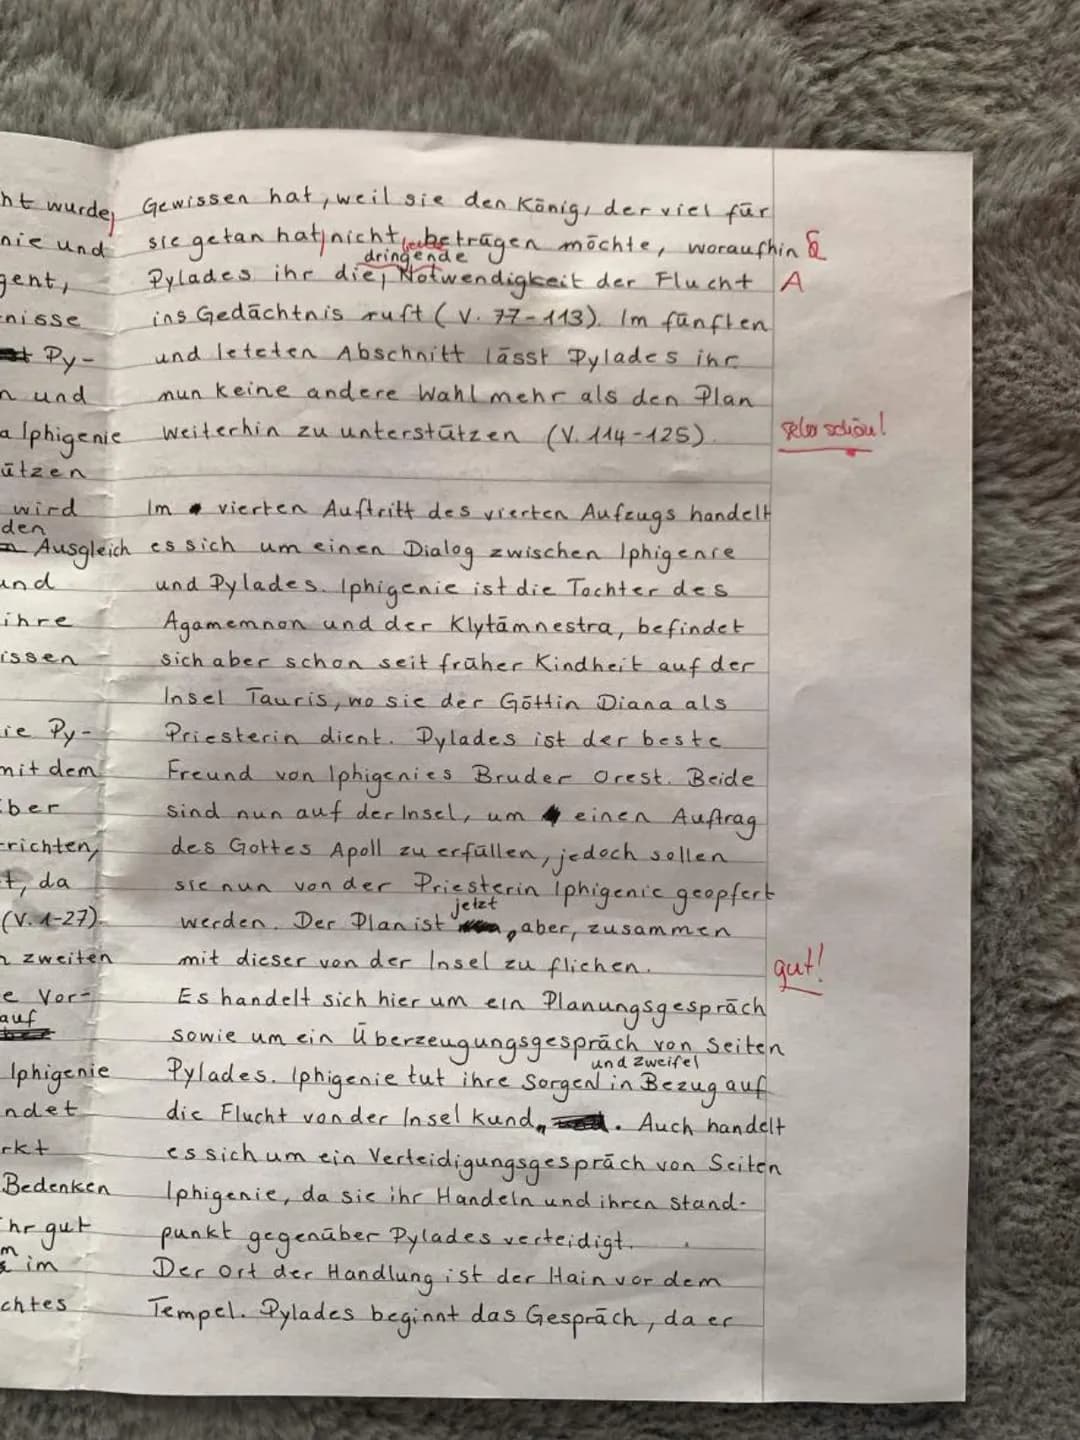 ht wurde,
nie und
gent,
nisse
Py-
n und
a Iphigenie
ützen
wird
den
Ausgleich
und
ihre
issen
ie Py-
mit dem
ber
richten,
t, da
(V. 1-27).
n zweiten
e Vor-
auf
Iphigenie
ndet
rkt
Bedenken
ihr gut
m
im
chtes
Gewissen hat, weil sie den König, der viel für
sie getan hat, nicht beträgen möchte, woraufhin
dringende
Pylades ihr die Notwendigkeit der Flucht A
ins Gedächtnis ruft (V. 77-113). Im fünften
und letzten Abschnitt lässt Pylades ihr
nun keine andere Wahl mehr als den Plan
weiterhin zu unterstützen (V. 114-125). sehr schön!
Im vierten Auftritt des vierten Aufzugs handelt
es sich um einen Dialog zwischen Iphigenie
und Pylades. Iphigenie ist die Tochter des
Agamemnon und der Klytämnestra, befindet
sich aber schon seit früher Kindheit auf der
Insel Tauris, wo sie der Göttin Diana als
Priesterin dient. Pylades ist der beste
Freund von Iphigenies Bruder Orest. Beide
sind nun auf der Insel, um einen Auftrag
des Gottes Apoll zu erfüllen, jedoch sollen
sie nun von der Priesterin Iphigenie geopfert
jetzt
werden. Der Plan ist , aber, zusammen
mit dieser von der Insel zu fliehen. gut!
Es handelt sich hier um ein Planungsgespräch
sowie um ein Überzeugungsgespräch von Seiten
und Zweifel
Pylades. Iphigenie tut ihre Sorgen in Bezug auf
die Flucht von der Insel kund. Auch handelt
es sich um ein Verteidigungsgespräch von Seiten
Iphigenie, da sie ihr Handeln und ihren Stand-
punkt gegenüber Pylades verteidigt.
Der Ort der Handlung ist der Hain vor dem
Tempel. Pylades beginnt das Gespräch, da er